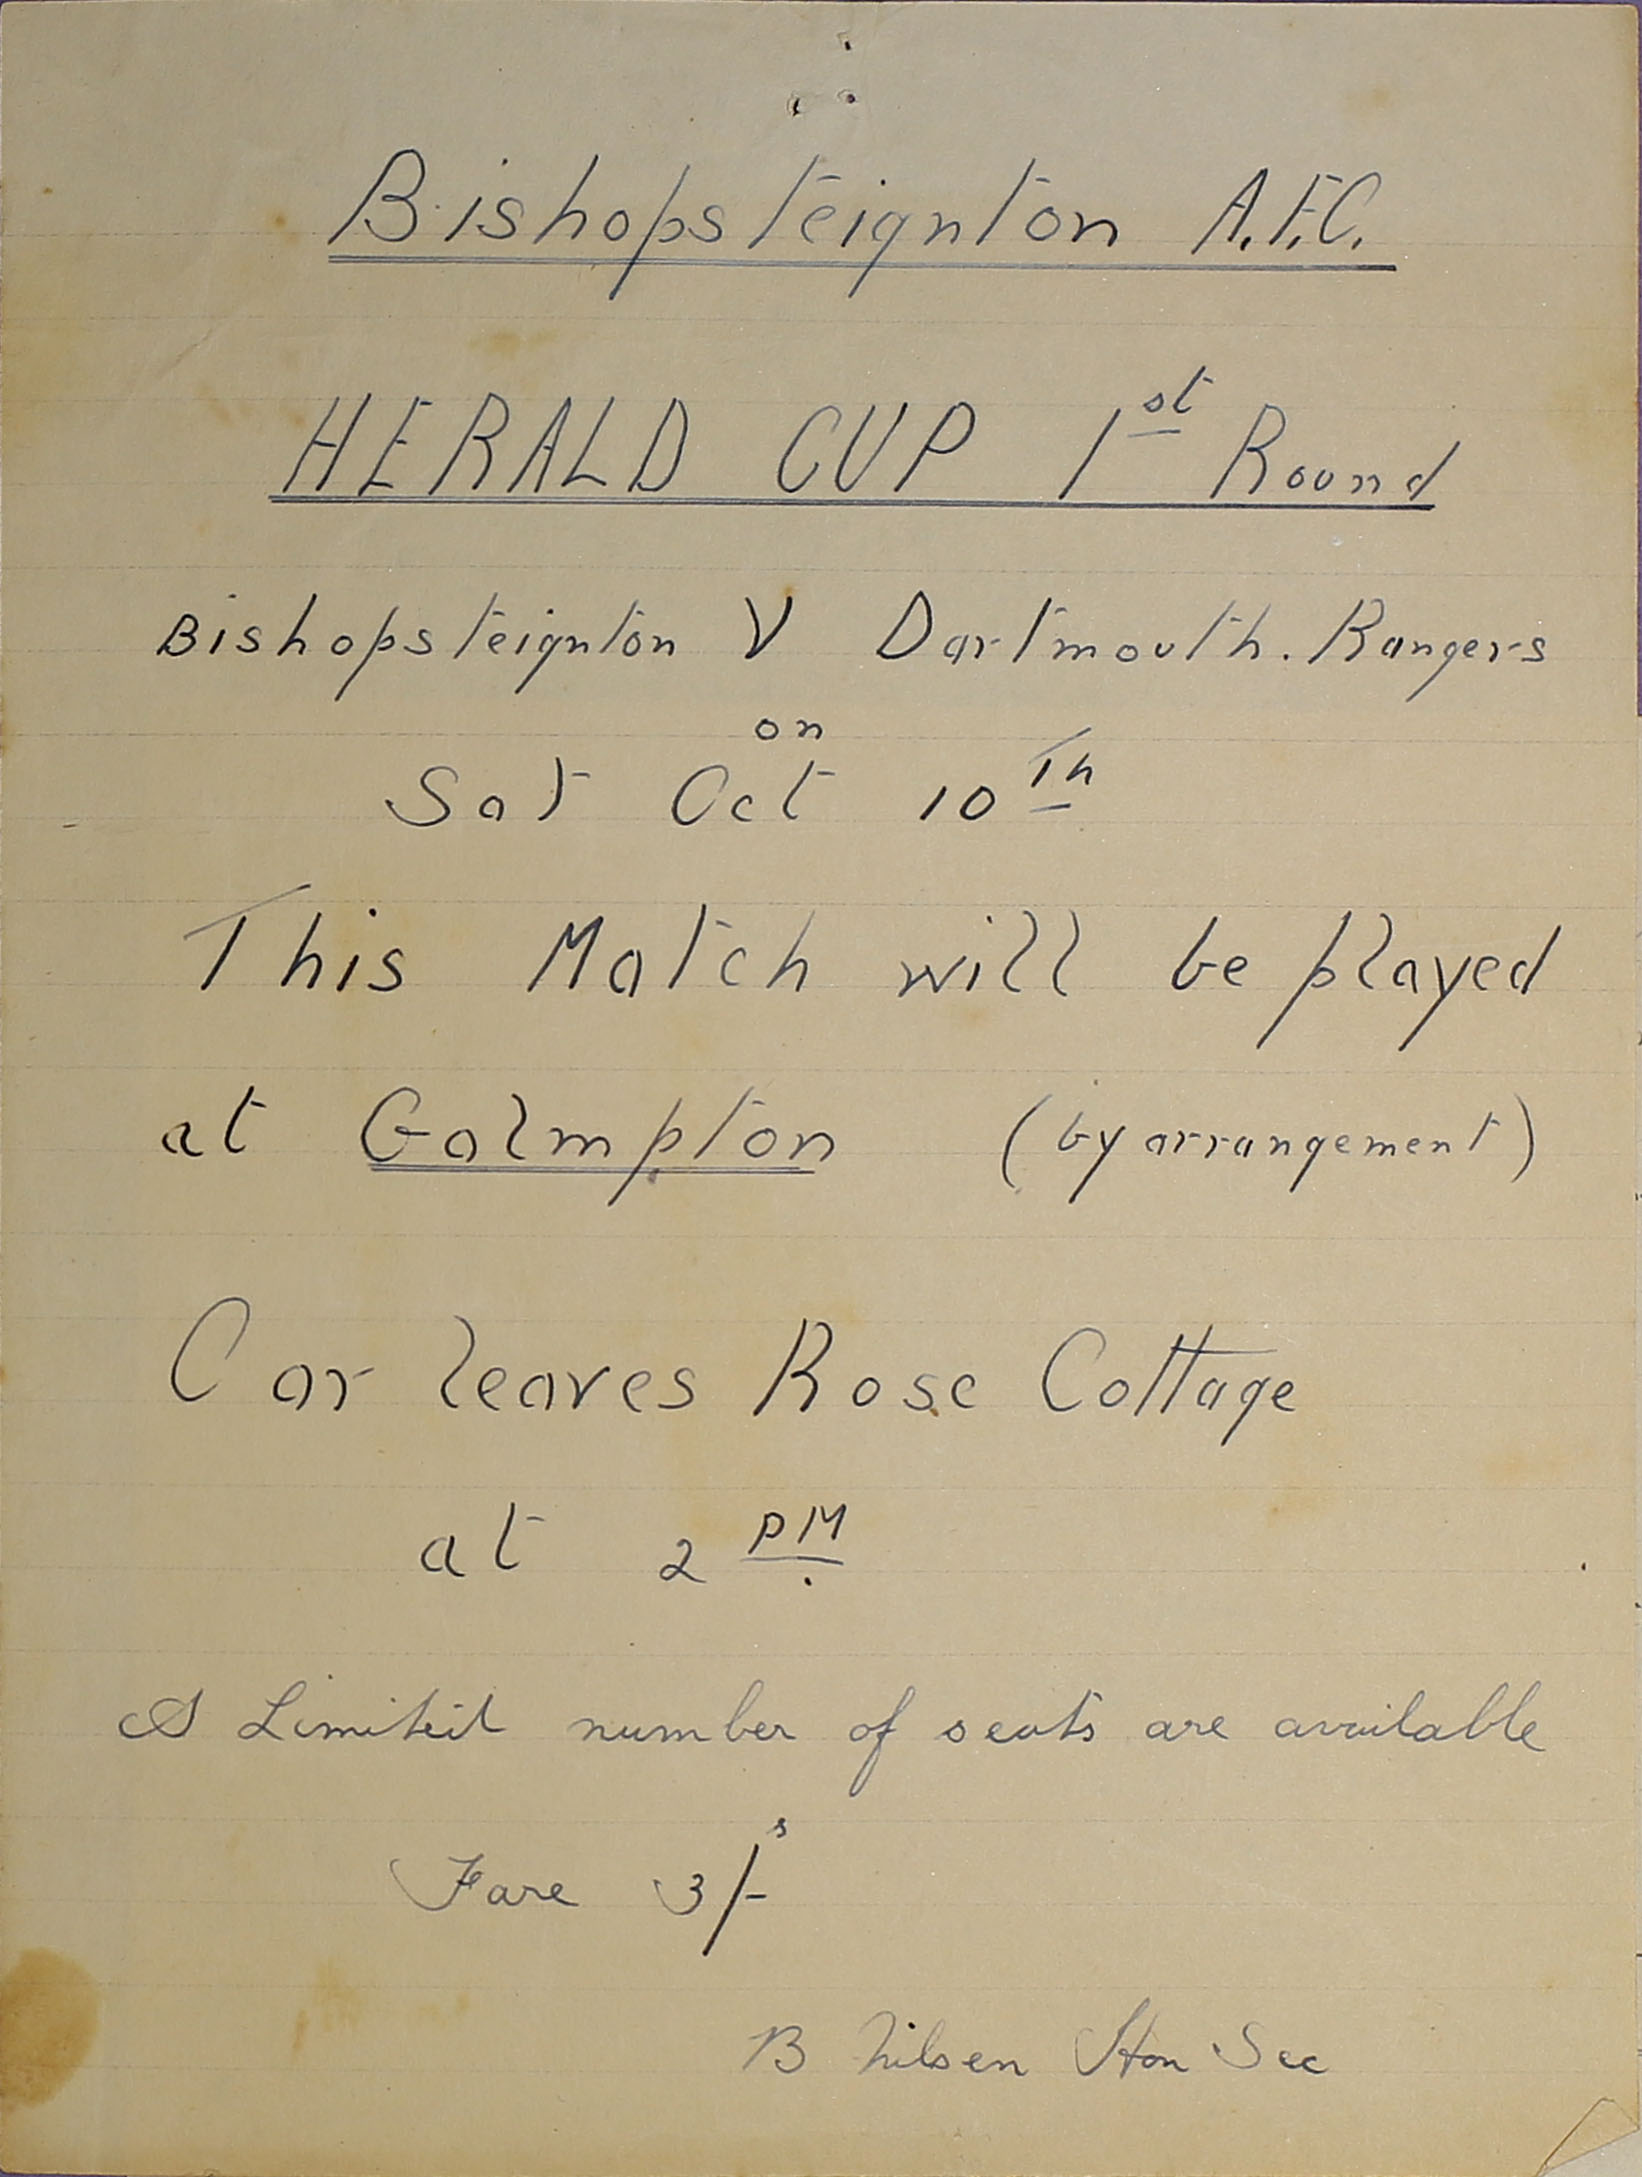 Bishopsteignton A.F.C.
HERALD CUP 1st Round
Bishopsteignton V Dartmouth. Rangers
on
Sat Oct 10th
This Match will be played
at Galmpton (by arrangement)
Car leaves Rose Cottage
at 2 PM.
A Limited number of seats are available
Fare 3/-s
B Nilsen Hon Sec